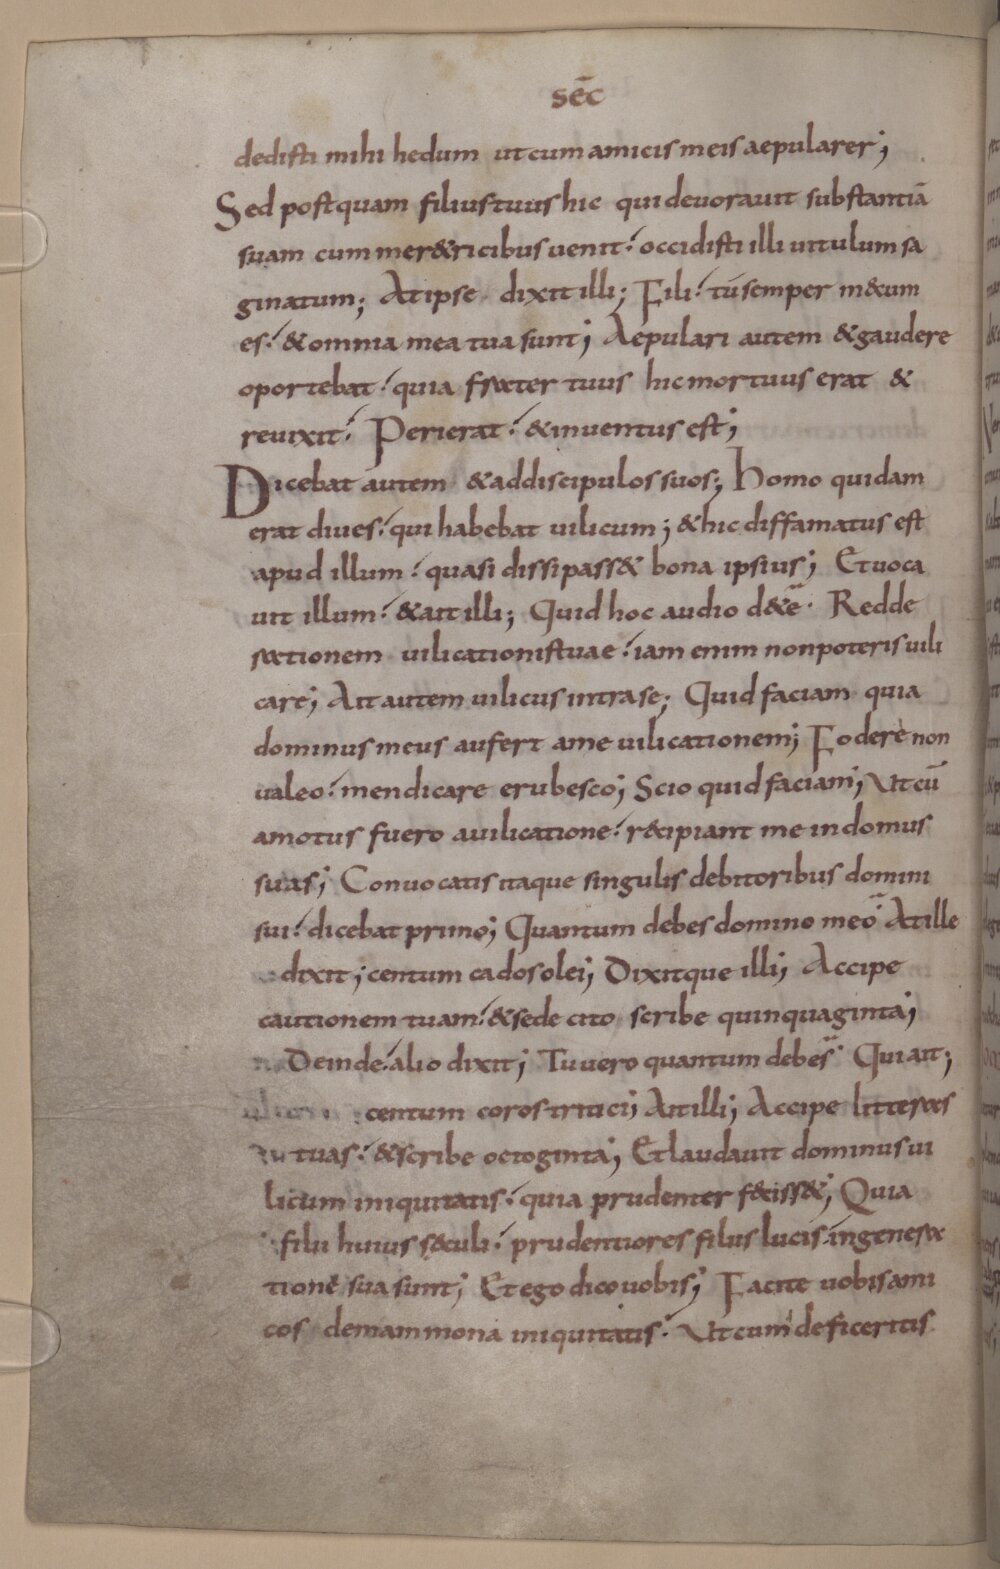 sēc
dedisti mihi hedum ut cum amicis meis aepularer;
Sed postquam filius tuus hic qui devoravit substantiā
suam cum mer&ricibus venit: occidisti illi vitulum sa
ginatum; At ipse dixit illi; Fili: tu semper mecum
es: & omnia mea tua sunt; Aepulari autem & gaudere
oportebat: quia frater tuus hic mortuus erat &
revixit: Perierat: & inventus est;
Dicebat autem & ad discipulos suos; Homo quidam
erat dives: qui habebat vilicum; & hic diffamatus est
apud illum: quasi dissipass& bona ipsius; Et voca
vit illum: & ait illi; Quid hoc audio d&e. Redde
rationem vilicationis tuae: iam enim non poteris vili
care; Ait autem vilicus intra se; Quid faciam quia
dominus meus aufert a me vilicationem; Fodere non
valeo: mendicare erubesco; Scio quid faciam; Ut cū
amotus fuero a vilicatione: r&cipiant me in domus
suas; Convocatis itaque singulis debitoribus domini
sui: dicebat primo; Quantum debes domino meo At ille
dixit; centum cados olei; Dixitque illi; Accipe
cautionem tuam: & sede cito scribe quinquaginta;
Deinde: alio dixit; Tu vero quantum debes Qui ait;
centum coros tritici; Ait illi; Accipe litteras
tuas: & scribe octoginta; Et laudavit dominus vi
licum iniquitatis: quia prudenter feciss&; Quia
filii huius sęculi: prudentiores filiis lucis: in genera
tione sua sunt; Et ego dico vobis; Facite vobis ami
cos de mammona iniquitatis: Ut cum deficeritis